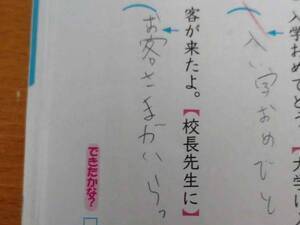 入学おめでとう【大学に入
入い学おめでと
客が来たよ。【校長先生に】
お客さまがいらっ
できたかな?